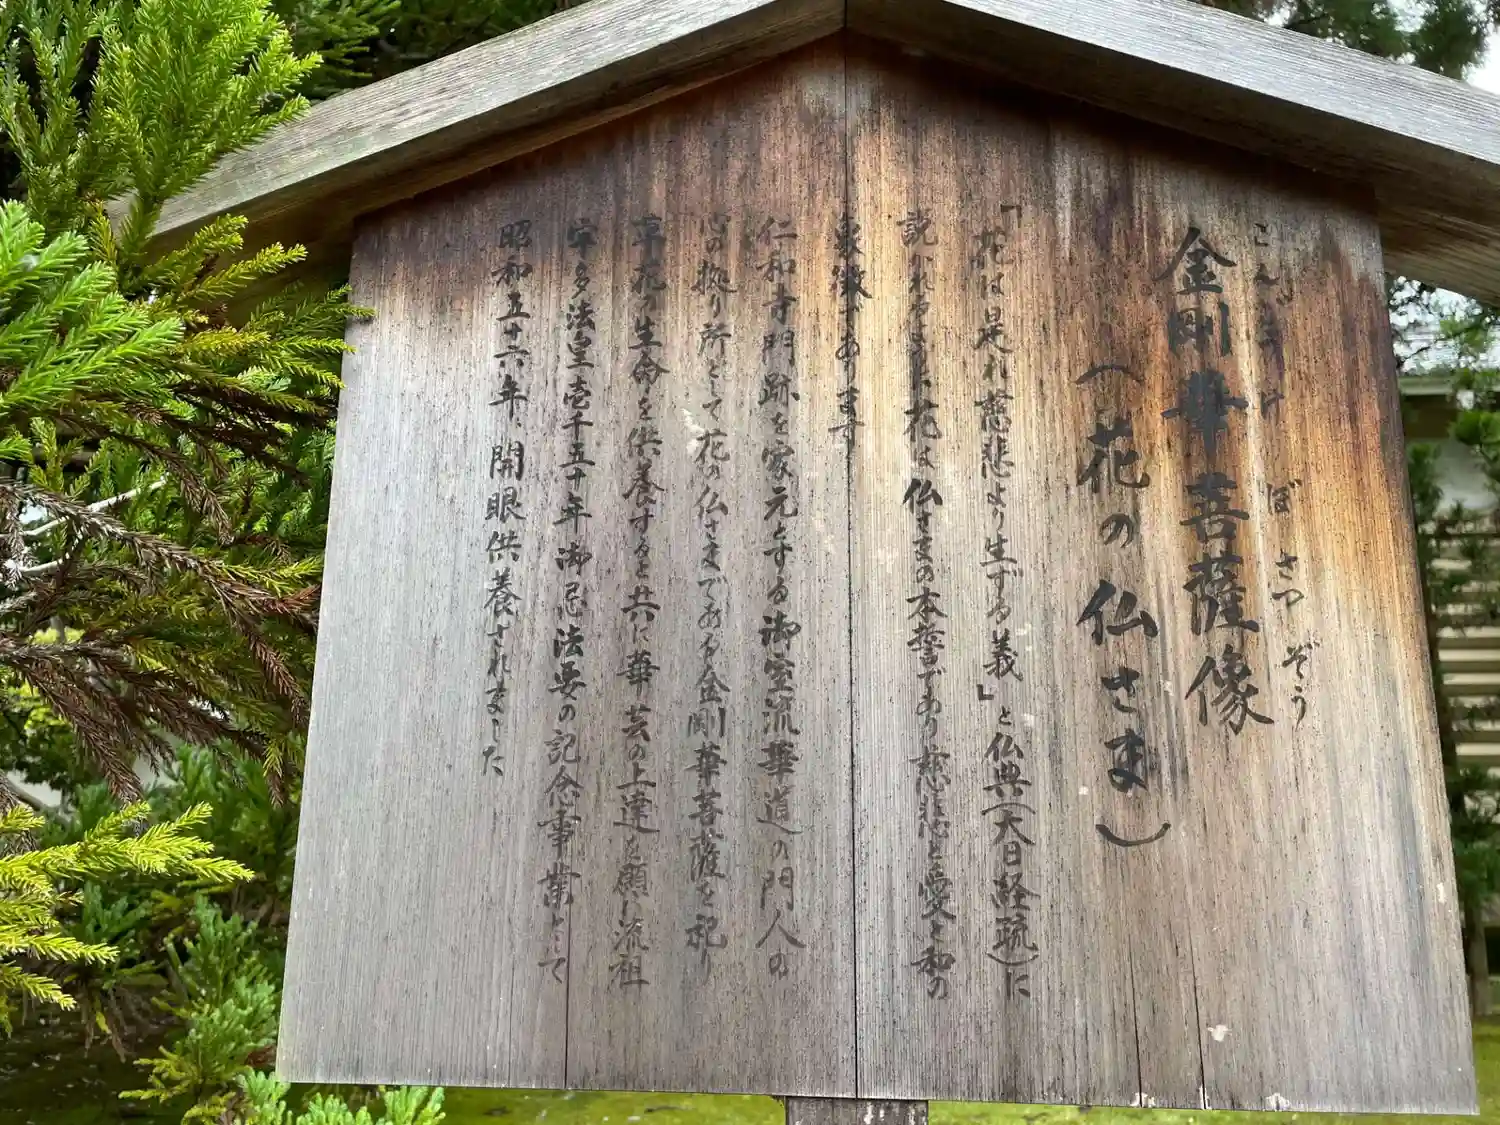 こんごうけ ぼさつ ぞう
金剛華菩薩像
(花の仏さま)
「花は是れ慈悲より生ずる義」と仏典(大日経疏)に
説かれるように花は仏さまの本誓であり慈悲と愛と和の
象徴であります
仁和寺門跡を家元とする御室流華道の門人の
心の拠り所として花の仏さまである金剛華菩薩を祀り
草花の生命を供養すると共に華芸の上達を願い流祖
宇多法皇壱千五十年御忌法要の記念事業として
昭和五十六年、開眼供養されました